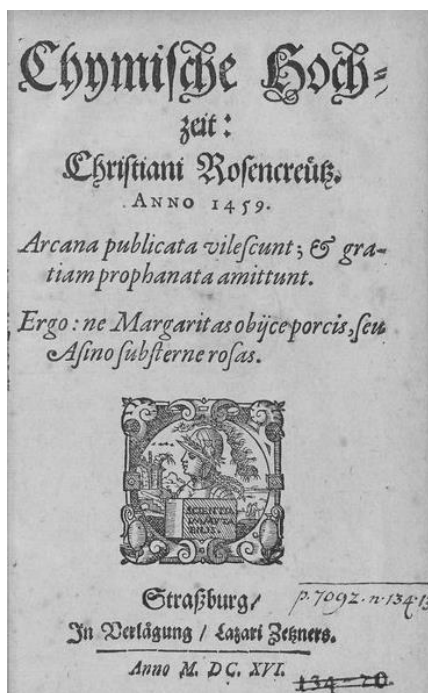 Chymische Hoch-
zeit:
Christiani Rosencreütz.
ANNO 1459.
Arcana publicata vilescunt; & gra-
tiam prophanata amittunt.
Ergo: ne Margaritas obijce porcis, seu
Asino substerne rosas.
SCIENTIA
IMMUTA
BILIS.
Straßburg/
In Verlägung / Lazari Zetzners.
Anno M. DC. XVI.
p. 7092. n. 134.
134-70